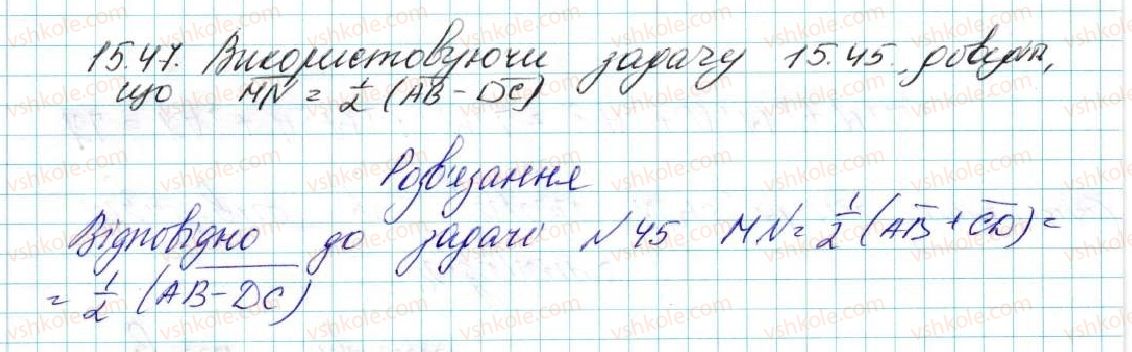 15.47. Використовуючи задачу 15.45. доведіть,
що MN = 1/2 (AB - DC)
Розв'язання
Відповідно до задачі №45 MN = 1/2 (AB + CD) =
= 1/2 (AB - DC)